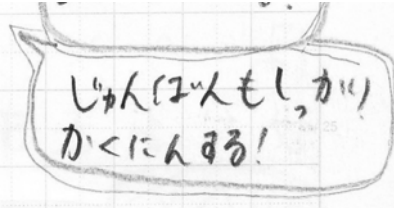 じゅんばんもしっかり
かくにんする！